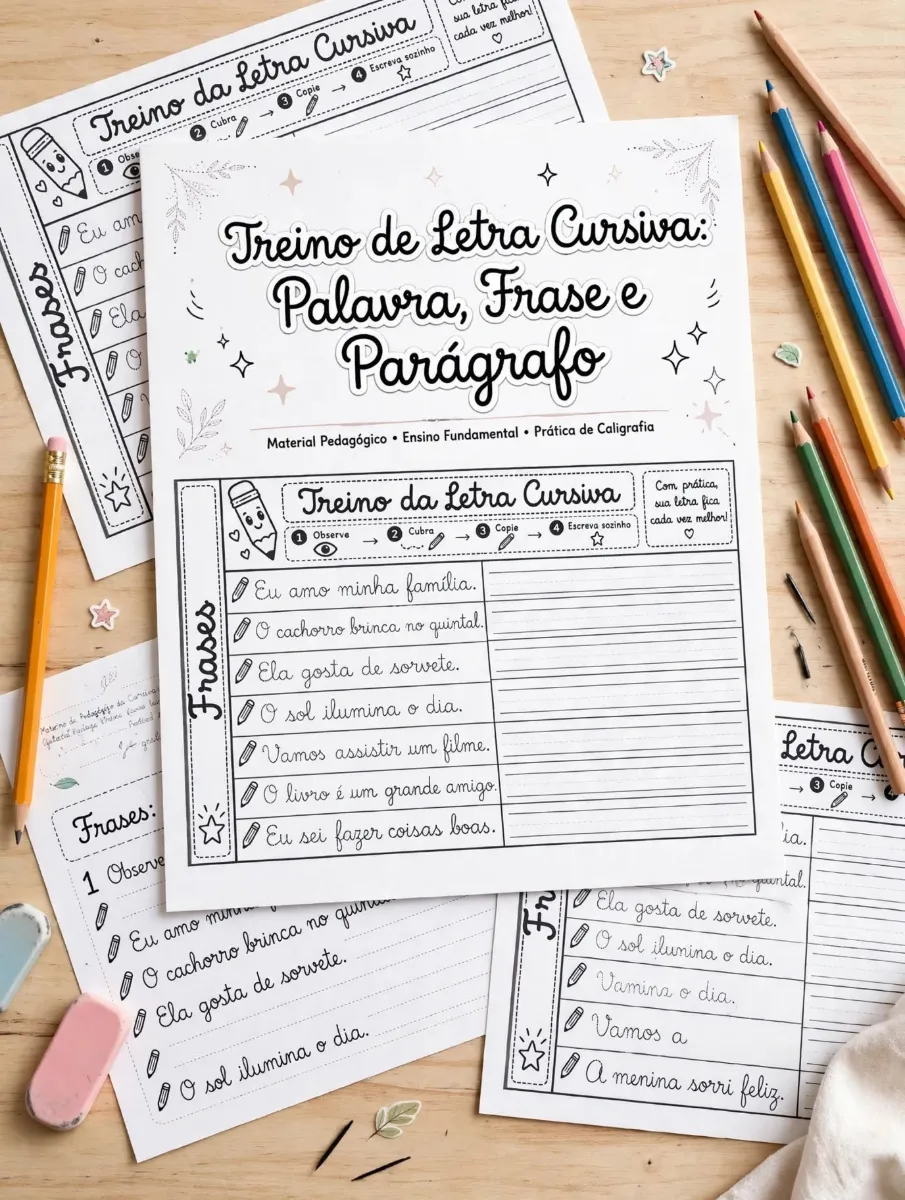 Treino da Letra Cursiva
sua letra fica
cada vez melhor!
1 Obse
2 Cubra
3 Copie
4 Escreva sozinho
Frases
Eu am
O cach
Ela
O
Treino de Letra Cursiva:
Palavra, Frase e
Parágrafo
Material Pedagógico • Ensino Fundamental • Prática de Caligrafia
Treino da Letra Cursiva
1 Observe → 2 Cubra → 3 Copie → 4 Escreva sozinho
Com prática,
sua letra fica
cada vez melhor!
Frases
Eu amo minha família.
O cachorro brinca no quintal.
Ela gosta de sorvete.
O sol ilumina o dia.
Vamos assistir um filme.
O livro é um grande amigo.
Eu sei fazer coisas boas.
Frases:
1 Observe
Eu amo minh
O cachorro brinca no quinta
Ela gosta de sorvete.
O sol ilumina o dia.
Letra C
3 Copie → 4
Fr
ia.
quintal.
Ela gosta de sorvete.
O sol ilunina o dia.
Vamina o dia.
Vamos a
A menina sorri feliz.